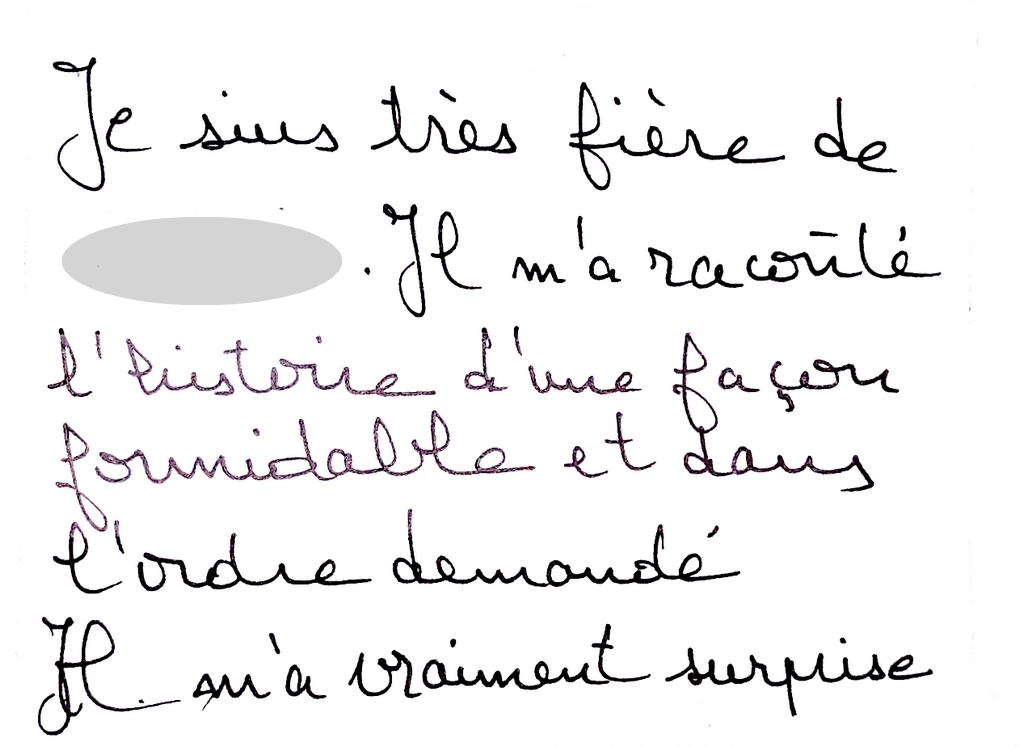 Je suis très fière de
. Il m'a raconté
l'histoire d'une façon
formidable et dans
l'ordre demandé
Il m'a vraiment surprise